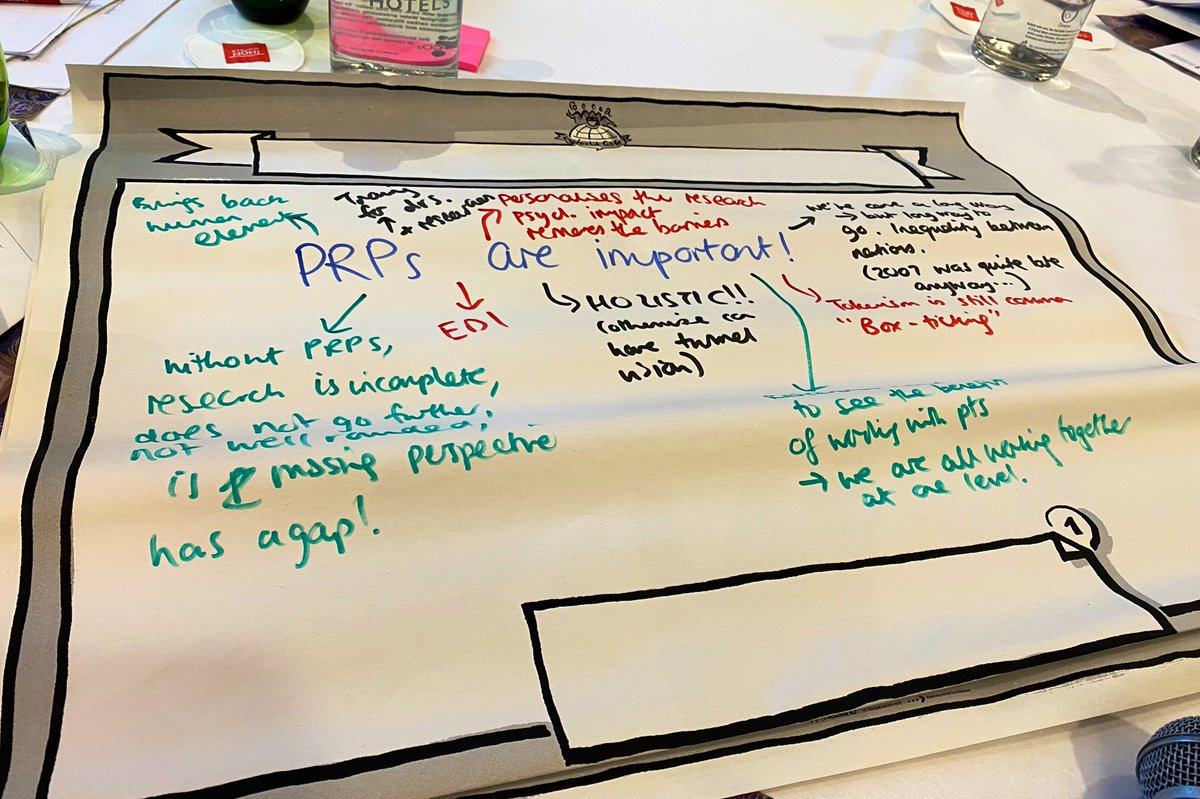 HOTELS
Brings back
human
element
for drs.
personalises the research
psych. impact
removes the barriers
we've come a long way
→ but long way to
go. Inequality between
nations.
(2007 was quite late
anyway...)
PRPs are important!
EDI
HOLISTIC!!
(otherwise can
have tunnel
vision)
Tokenism is still common
"Box-ticking"
without PRPs,
research is incomplete,
does not go further,
not well rounded,
is missing perspective
has a gap!
to see the benefits
of working with pts
→ we are all working together
at one level.
1